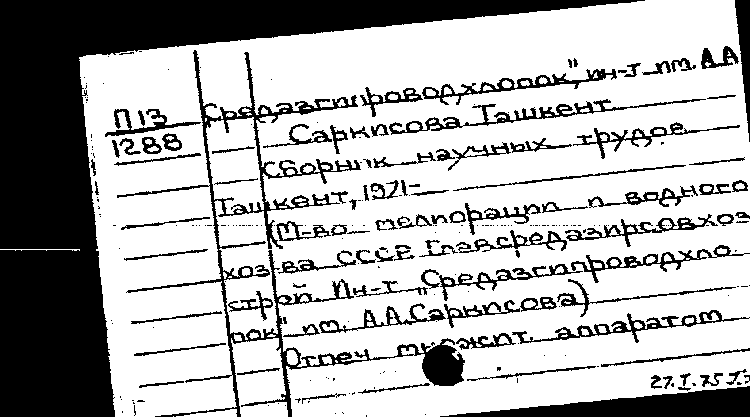 П13
1288
Средазгипроводхлопок", ин-т им. А.А.
Саркисова. Ташкент.
Сборник научных трудов.
Ташкент, 1971-
(М-во мелиорации и водного
хоз-ва СССР. Главсредазирсовхоз
строй. Ин-т "Средазгипроводхло
пок" им. А.А. Саркисова)
Отпеч. множит. аппаратом
27.I.75